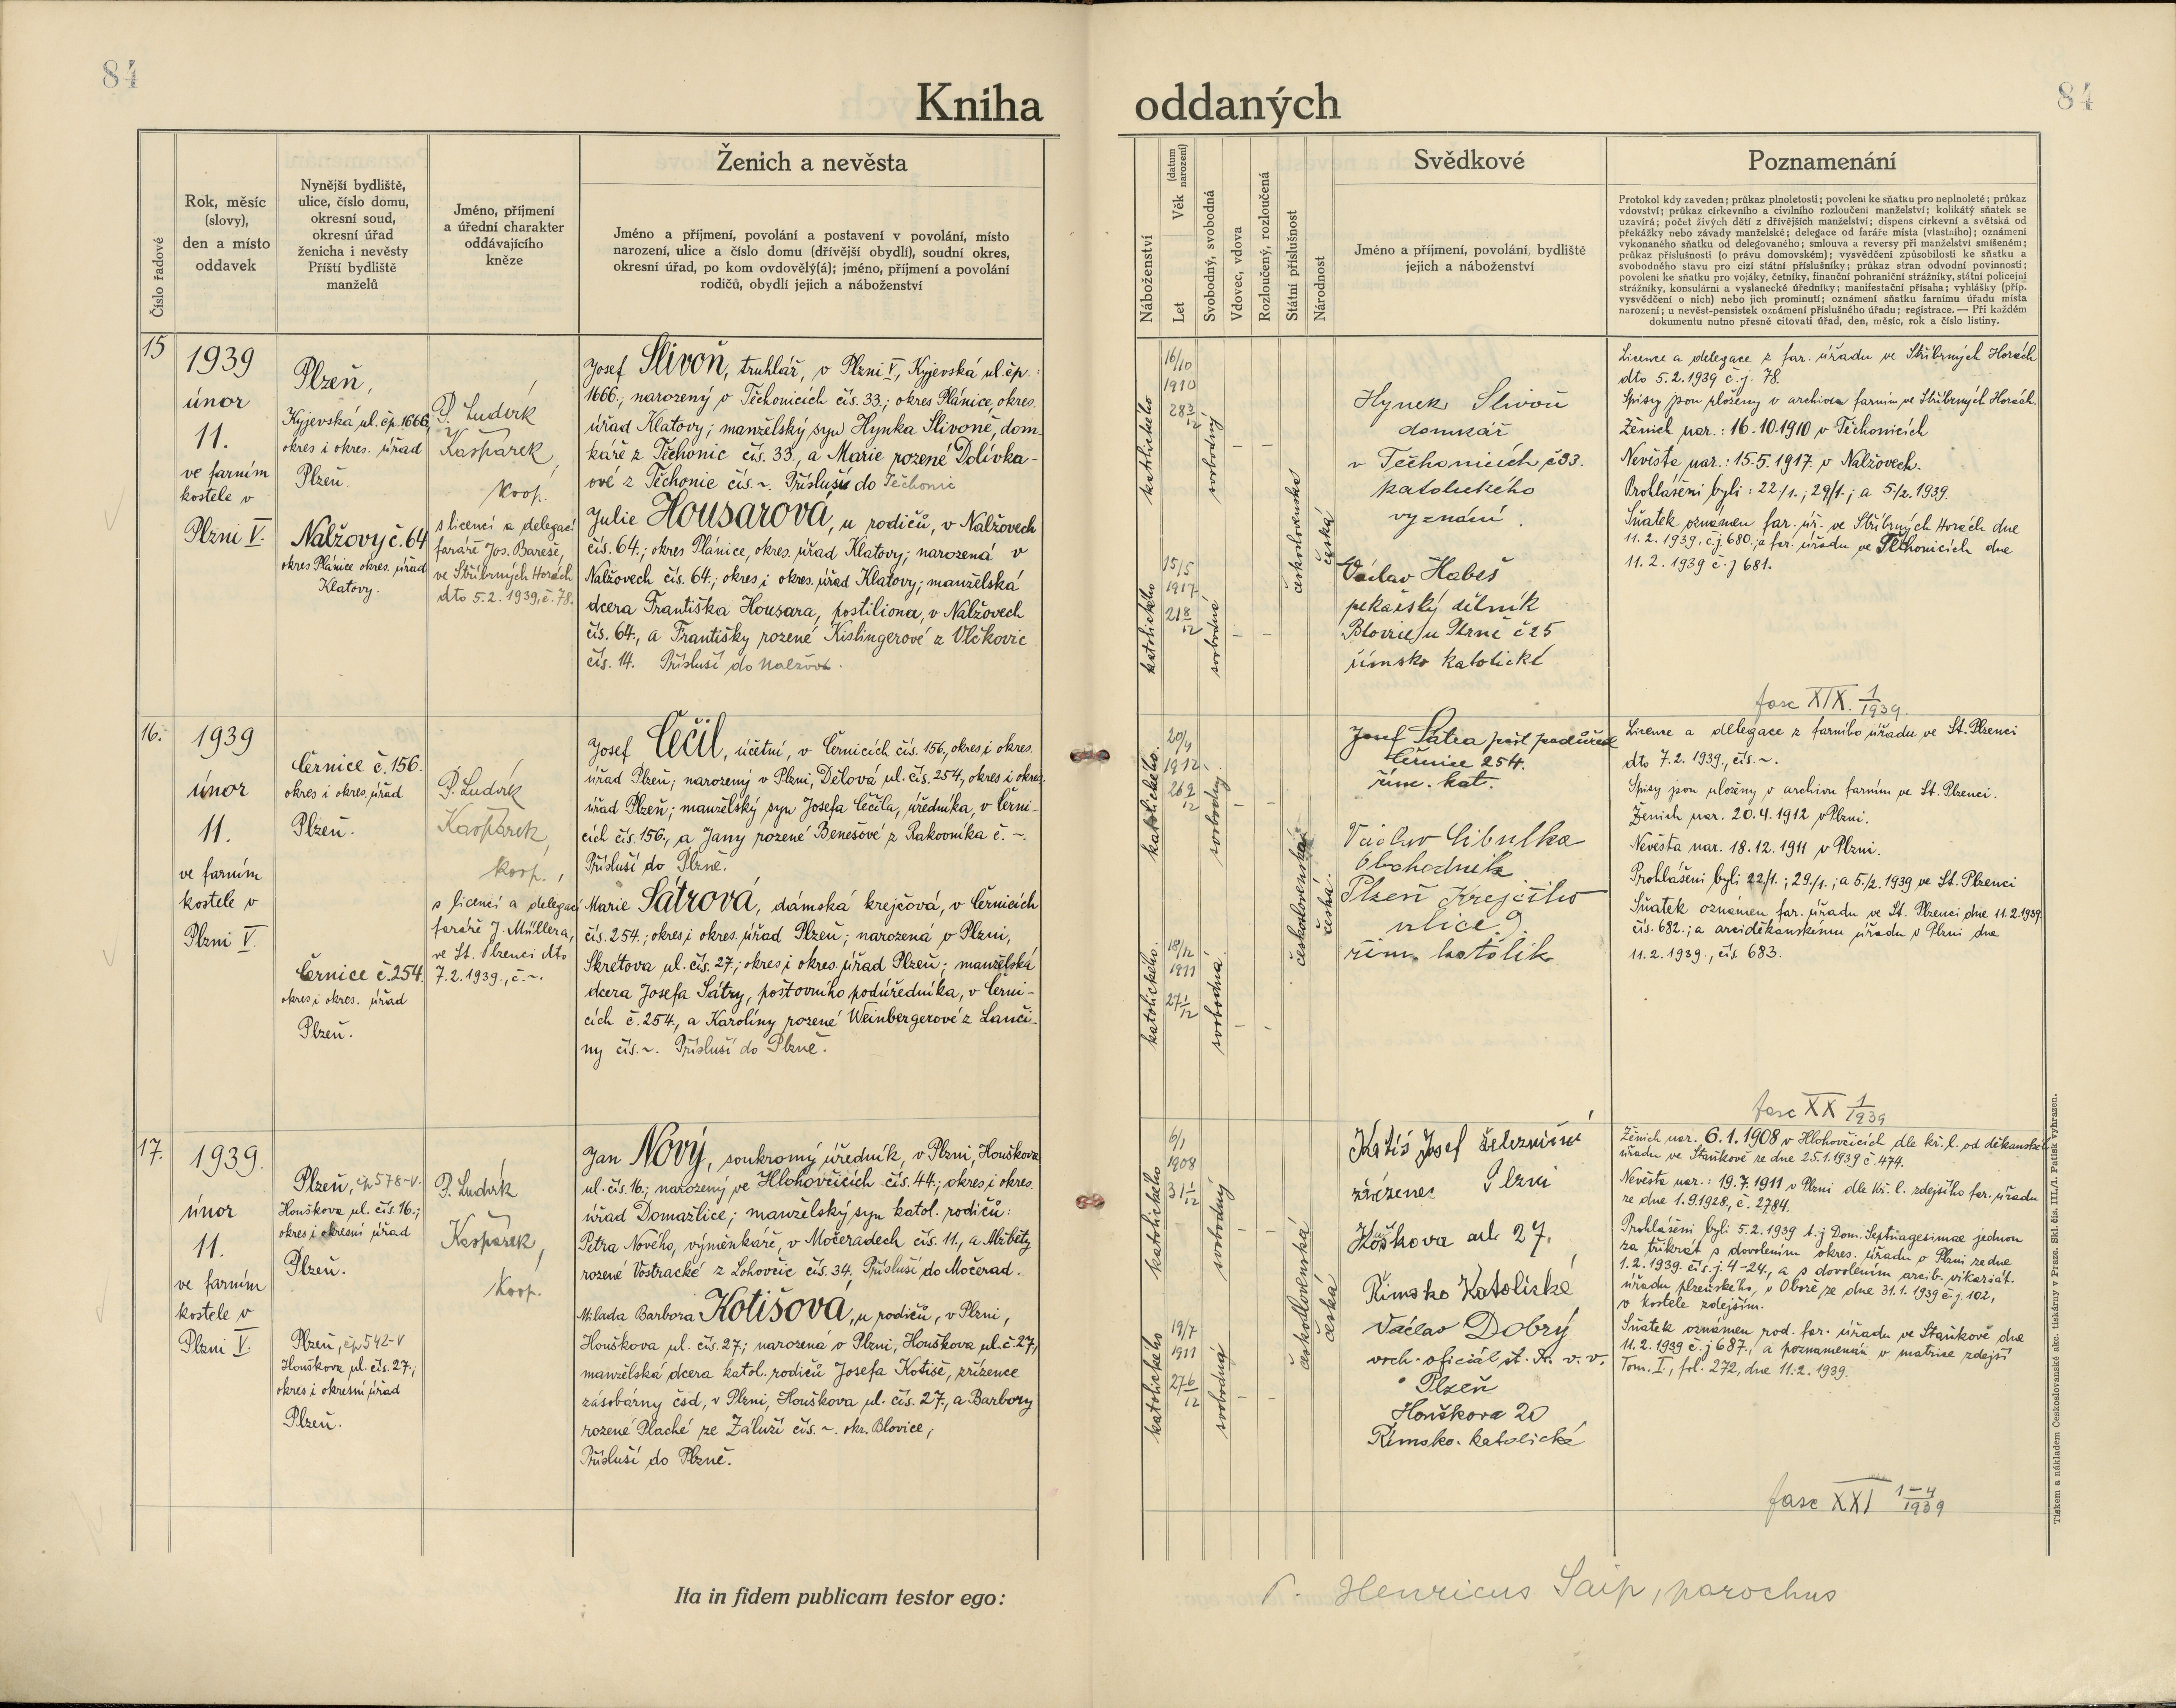 84
84
Kniha oddaných
Číslo řadové
Rok, měsíc
(slovy),
den a místo
oddavek
Nynější bydliště,
ulice, číslo domu,
okresní soud,
okresní úřad
ženicha i nevěsty
Příští bydliště
manželů
Jméno, příjmení
a úřední charakter
oddávajícího
kněze
Ženich a nevěsta
Jméno a příjmení, povolání a postavení v povolání, místo
narození, ulice a číslo domu (dřívější obydlí), soudní okres,
okresní úřad, po kom ovdovělý(á); jméno, příjmení a povolání
rodičů, obydlí jejich a náboženství
Náboženství
Věk (datum narození)
Let
Svobodný, svobodná
Vdovec, vdova
Rozloučený, rozloučená
Státní příslušnost
Národnost
Svědkové
Jméno a příjmení, povolání, bydliště
jejich a náboženství
Poznamenání
Protokol kdy zaveden; průkaz plnoletosti; povolení ke sňatku pro neplnoleté; průkaz
vdovství; průkaz církevního a civilního rozloučení manželství; kolikátý sňatek se
uzavírá; počet živých dětí z dřívějších manželství; dispens církevní a světská od
překážky nebo závady manželské; delegace od faráře místa (vlastního); oznámení
vykonaného sňatku od delegovaného; smlouva a reversy při manželství smíšeném;
průkaz příslušnosti (o právu domovském); vysvědčení způsobilosti ke sňatku a
svobodného stavu pro cizí státní příslušníky; průkaz stran odvodní povinnosti;
povolení ke sňatku pro vojáky, četníky, finanční pohraniční strážníky, státní policejní
strážníky, konsulární a vyslanecké úředníky; manifestační přísaha; vyhlášky (příp.
vysvědčení o nich) nebo jich prominutí; oznámení sňatku farnímu úřadu místa
narození; u nevěst-pensistek oznámení příslušného úřadu; registrace. — Při každém
dokumentu nutno přesně citovati úřad, den, měsíc, rok a číslo listiny.
15
1939
únor
11.
ve farním
kostele v
Plzni V.
Plzeň,
Kyjevská ul. čp. 1666,
okres i okres. úřad
Plzeň.
Nalžovy č. 64
okres Plánice okres. úřad
Klatovy.
P. Ludvík
Kašpárek,
koop.
s licencí a delegací
faráře Jos. Bareše,
ve Stříbrných Horách
dto 5.2.1939, č. 78.
Josef Slivoň, truhlář, v Plzni V, Kyjevská ul. čp.
1666.; narozený v Těchonicích čís. 33.; okres Plánice, okres.
úřad Klatovy; manželský syn Hynka Slivoně, dom-
káře z Těchonic čís. 33., a Marie rozené Dolívka-
ové z Těchonic čís. ~. Přísluší do Těchonic
Julie Housarová, u rodičů, v Nalžovech
čís. 64.; okres Plánice, okres. úřad Klatovy; narozená v
Nalžovech čís. 64.; okres i okres. úřad Klatovy; manželská
dcera Františka Housara, postiliona, v Nalžovech
čís. 64., a Františky rozené Kislingerové z Vlčkovic
čís. 14. Přísluší do Nalžov.
katolického
16/10
1910
28 3/12
svobodný
– –
katolického
15/5
1917
21 8/12
svobodná
– –
československá
česká
Hynek Slivoň
domkář
v Těchonicích č 33.
katolického
vyznání.
Václav Habeš
pekařský dělník
Blovice u Plzně č 25
římsko katolické
Licence a delegace z far. úřadu ve Stříbrných Horách
dto 5.2.1939 č.j. 78.
Spisy jsou uloženy v archivu farním ve Stříbrných Horách.
Ženich nar.: 16.10.1910 v Těchonicích
Nevěsta nar.: 15.5.1917. v Nalžovech.
Prohlášeni byli: 22/1.; 29/1.; a 5/2. 1939.
Sňatek oznámen far. úř. ve Stříbrných Horách dne
11.2.1939, č.j. 680.; a far. úřadu ve Těchonicích dne
11.2.1939 č.j 681.
fasc XIX. 1/1939.
16.
1939
únor
11.
ve farním
kostele v
Plzni V.
Černice č. 156.
okres i okres. úřad
Plzeň.
Černice č. 254.
okres i okres. úřad
Plzeň.
P. Ludvík
Kašpárek,
koop.,
s licencí a delegací
faráře J. Müllera,
ve St. Plzenci dto
7.2.1939., č. ~.
Josef Čečil, účetní, v Černicích čís. 156., okres i okres.
úřad Plzeň; narozený v Plzni, Dělová ul. čís. 254., okres i okres.
úřad Plzeň; manželský syn Josefa Čečila, úředníka, v Černi-
cích čís. 156., a Jany rozené Benešové z Rakovníka č. ~.
Přísluší do Plzně.
Marie Šátrová, dámská krejčová, v Černicích
čís. 254.; okres i okres. úřad Plzeň; narozená v Plzni,
Skretova ul. čís. 27.; okres i okres. úřad Plzeň; manželská
dcera Josefa Šátry, poštovního podúředníka, v Černi-
cích č. 254., a Karolíny rozené Weinbergerové z Lanči-
ny čís. ~. Přísluší do Plzně.
katolického.
20/4
1912
26 9/12
svobodný
– –
katolického.
18/12
1911
27 1/12
svobodná
– –
československá
česká.
Josef Šatra pošt podúřed
Černice 254.
řím. kat.
Václav Cibulka
Obchodník
Plzeň Krejčího
ulice 9.
řím. katolík
Licence a delegace z farního úřadu ve St. Plzenci
dto 7.2.1939., čís. ~.
Spisy jsou uloženy v archivu farním ve St. Plzenci.
Ženich nar. 20.4.1912 v Plzni.
Nevěsta nar. 18.12.1911 v Plzni.
Prohlášeni byli 22/1.; 29./1.; a 5./2. 1939 ve St. Plzenci
Sňatek oznámen far. úřadu ve St. Plzenci dne 11.2.1939.
čís. 682.; a arciděkanskému úřadu v Plzni dne
11.2.1939., čís 683.
fasc XX 1/1939
17.
1939.
únor
11.
ve farním
kostele v
Plzni V.
Plzeň, čp 578-V.
Houškova ul. čís. 16.;
okres i okresní úřad
Plzeň.
Plzeň, čp 542-V
Houškova ul. čís. 27.;
okres i okresní úřad
Plzeň.
P. Ludvík
Kašpárek,
koop.
Jan Nový, soukromý úředník, v Plzni, Houškova
ul. čís. 16.; narozený ve Hlohovčicích čís. 44.; okres i okres.
úřad Domažlice; manželský syn katol. rodičů:
Petra Nového, výměnkáře, v Močeradech čís. 11., a Alžběty
rozené Vostracké z Lohovčic čís. 34. Přísluší do Močerad.
Milada Barbora Kotišová, u rodičů, v Plzni,
Houškova ul. čís. 27.; narozená v Plzni, Houškova ul. č. 27.,
manželská dcera katol. rodičů Josefa Kotiše, zřízence
zásobárny čsd, v Plzni, Houškova ul. čís. 27., a Barbory
rozené Plaché ze Záluží čís. ~. okr. Blovice,
Přísluší do Plzně.
katolického
6/1
1908
31 1/12
svobodný
– –
katolického
19/7
1911
27 6/12
svobodná
– –
československá
česká
Kotiš Josef železniční
zřízenec Plzni
Houškova ul. 27.
Římsko Katolické
Václav Dobrý
voch. oficiál st. A. v. v.
Plzeň
Houškova 20
Římsko. katolické
Ženich nar. 6.1.1908 v Hlohovčicích dle kř. l. od děkanského
úřadu ve Staňkově ze dne 25.1.1939 č. 474.
Nevěsta nar.: 19.7.1911 v Plzni dle kř. l. zdejšího far. úřadu
ze dne 1.9.1928, č. 2784.
Prohlášeni byli 5.2.1939 t.j Dom. Septuagesimae jednou
za třikrát s dovolením okres. úřadu v Plzni ze dne
1.2.1939. čís. j. 4-24., a s dovolením arcib. vikariát.
úřadu plzeňského, v Oboře, ze dne 31.1.1939 č.j. 102,
v kostele zdejším.
Sňatek oznámen rod. far. úřadu ve Staňkově dne
11.2.1939 č.j 687., a poznamenán v matrice zdejší
Tom. I., fol. 272, dne 11.2.1939.
fasc XXI 1-4/1939
Ita in fidem publicam testor ego:
P. Henricus Saip, parochus
Tiskem a nákladem Československé akc. tiskárny v Praze. Skl. čís. III./1. Patisk vyhrazen.